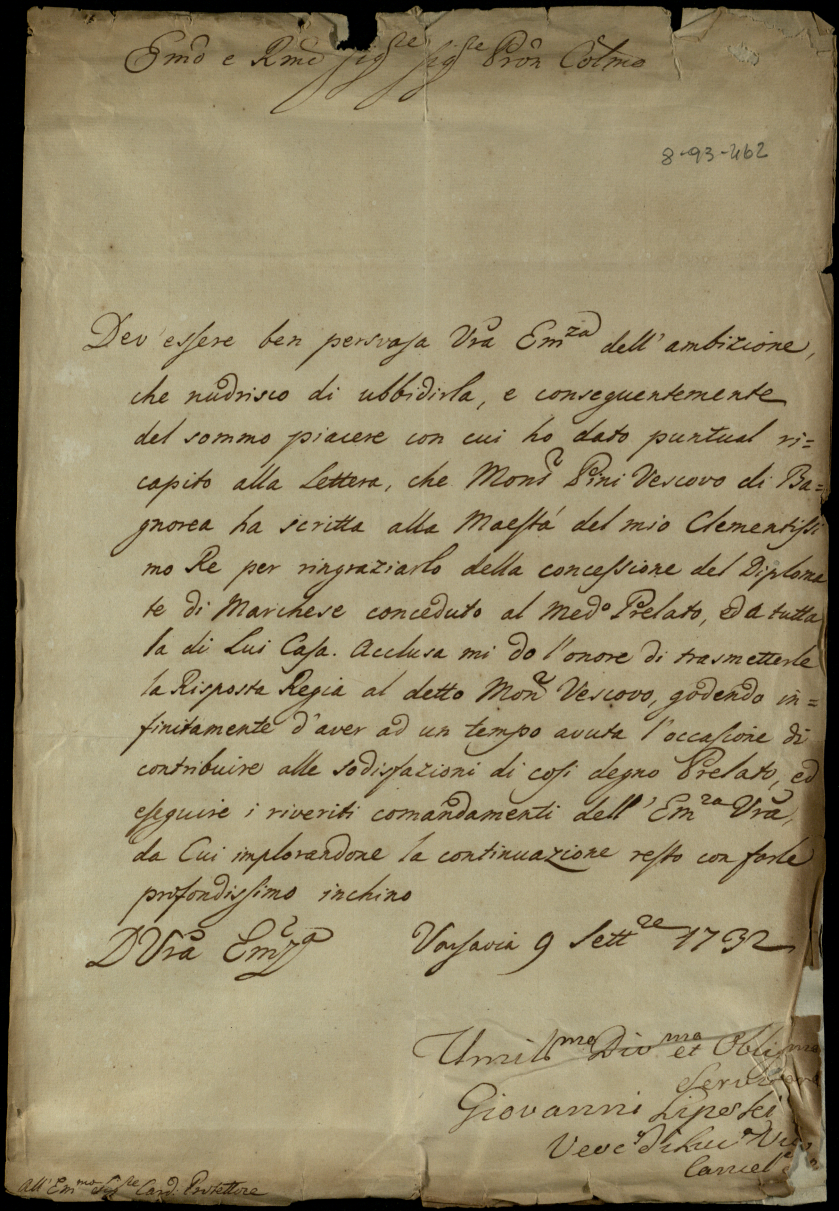 Emo e Rmo Sigre Sigre Pron Colmo
8-93-462
Dev'essere ben persvasa Vra Emza dell'ambizione,
che nudrisco di ubbidirla, e conseguentemente
del sommo piacere con cui ho dato puntual ri=
capito alla Lettera, che Monsr Pini Vescovo di Ba=
gnorea ha scritta alla Maestá del mio Clementissi
mo Re per ringraziarlo della concessione del Diploma
te di Marchese conceduto al Medo Prelato, ed a tutta
la di Lui Casa. Acclusa mi do l'onore di trasmetterle
la Risposta Regia al detto Monr Vescovo, godendo in=
finitamente d'aver ad un tempo avuta l'occasione di
contribuire alle sodisfazioni di cosi degno Prelato, ed
eseguire i riveriti comandamenti dell'Emza Vra,
da Cui implorandone la continuazione resto con farle
profondissimo inchino
D Vra Emza Varsavia 9 Settre 1732
Umilmo Divmo et Obligmo
Servitore
Giovanni Lipski
Vevo di
Cancel
All'Emmo Sigre Card. Protettore